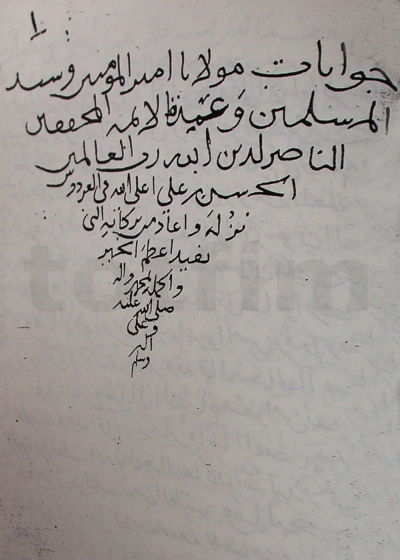 ١
جوابات مولانا امير المومنين وسيد
المسلمين وعمدة الائمه المحققين
الناصر لدين الله رب العالمين
الحسن بن علي اعلى الله في الفردوس
نزله واعاد من بركاته التي
اعظم الخير
واله
صلى الله عليه
وعلى
اله
وسلم